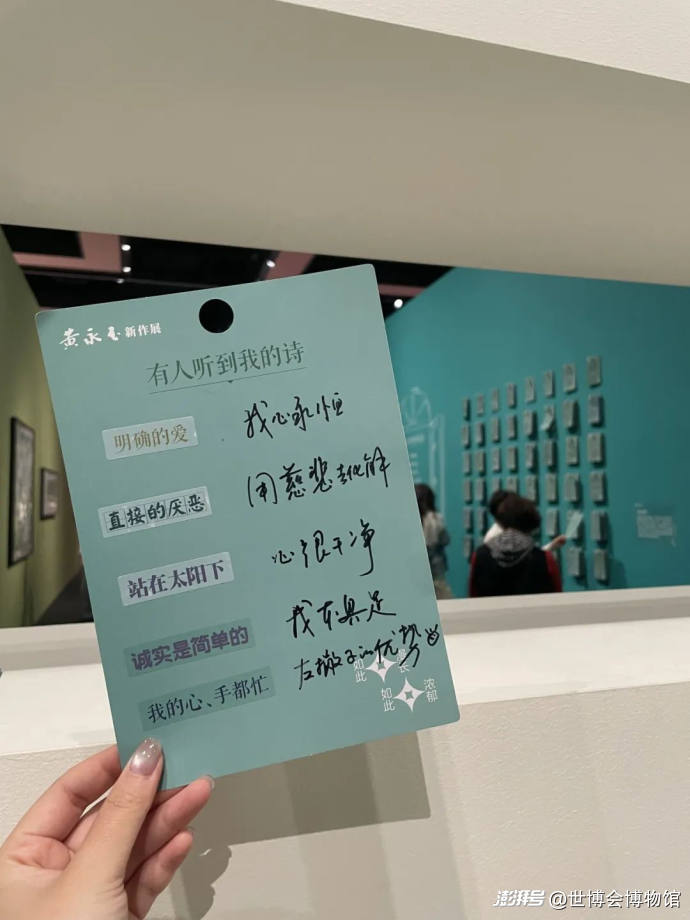 黄永玉新作展
有人听到我的诗
明确的爱 我心永恒
直接的厌恶 用慈悲去化解
站在太阳下 心很干净
诚实是简单的 我本具足
我的心、手都忙 左撇子的优势
如此
如此 浓郁
澎湃号@世博会博物馆